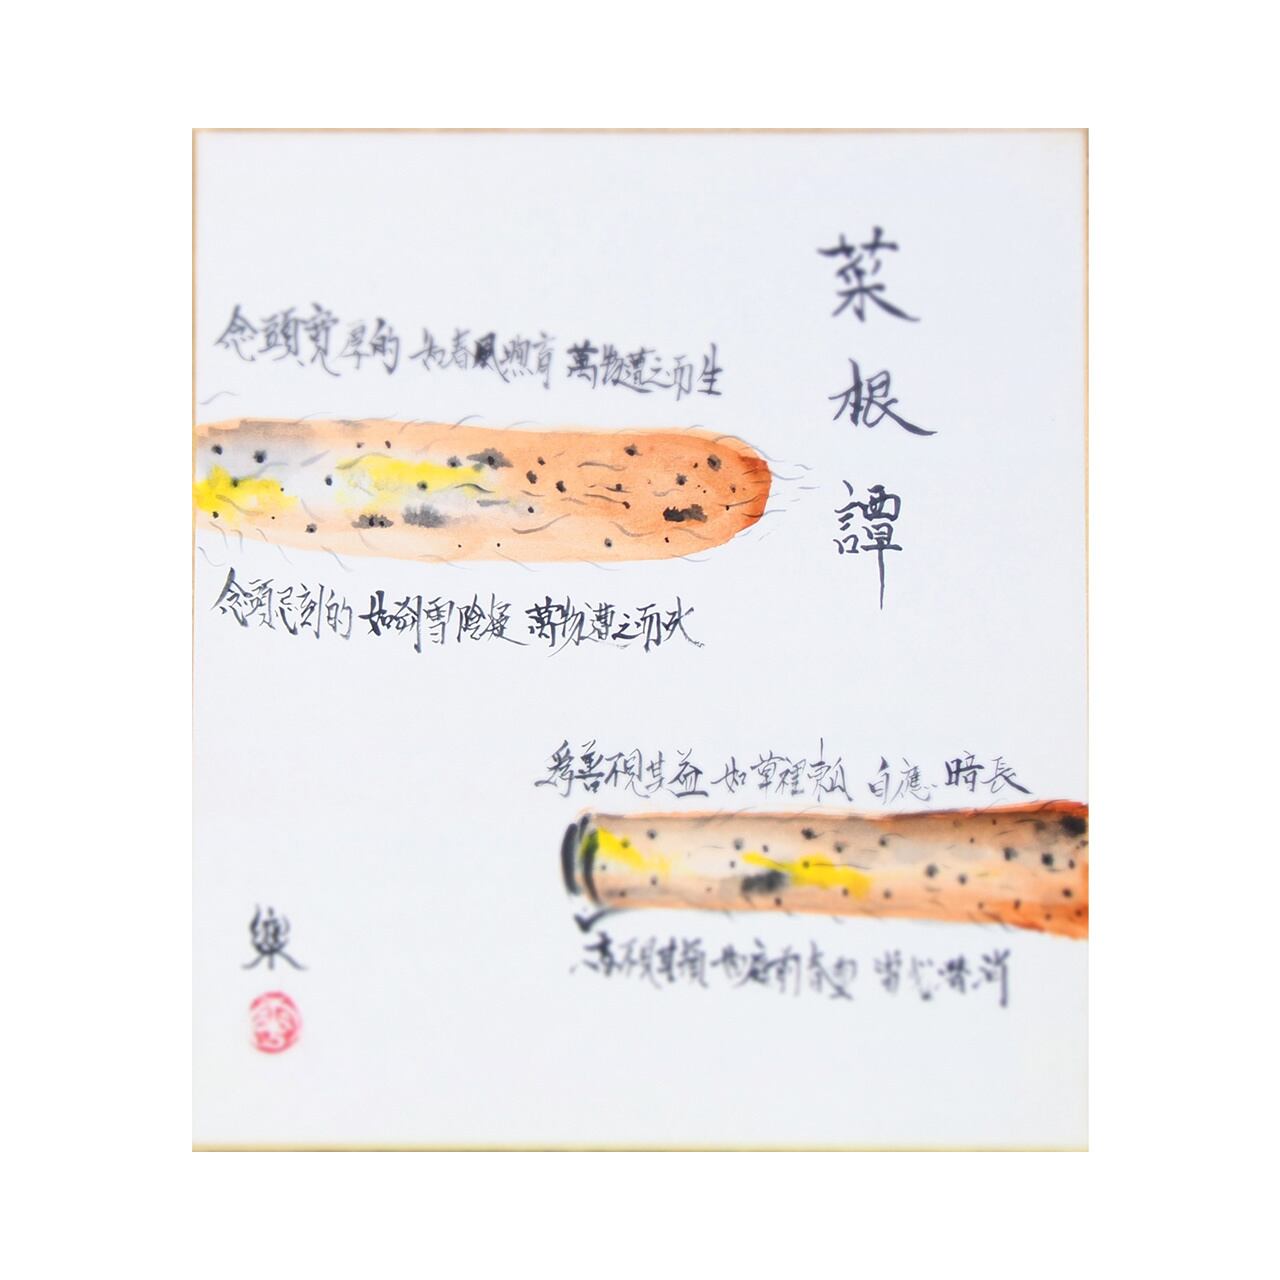 菜根譚
念頭寬厚的 如春風煦育 萬物遭之而生
念頭忌刻的 如朔雪陰凝 萬物遭之而死
為善不見其益 如草裡東瓜 自應暗長
為惡不見其損 如庭前春雪 當必潛消
樂